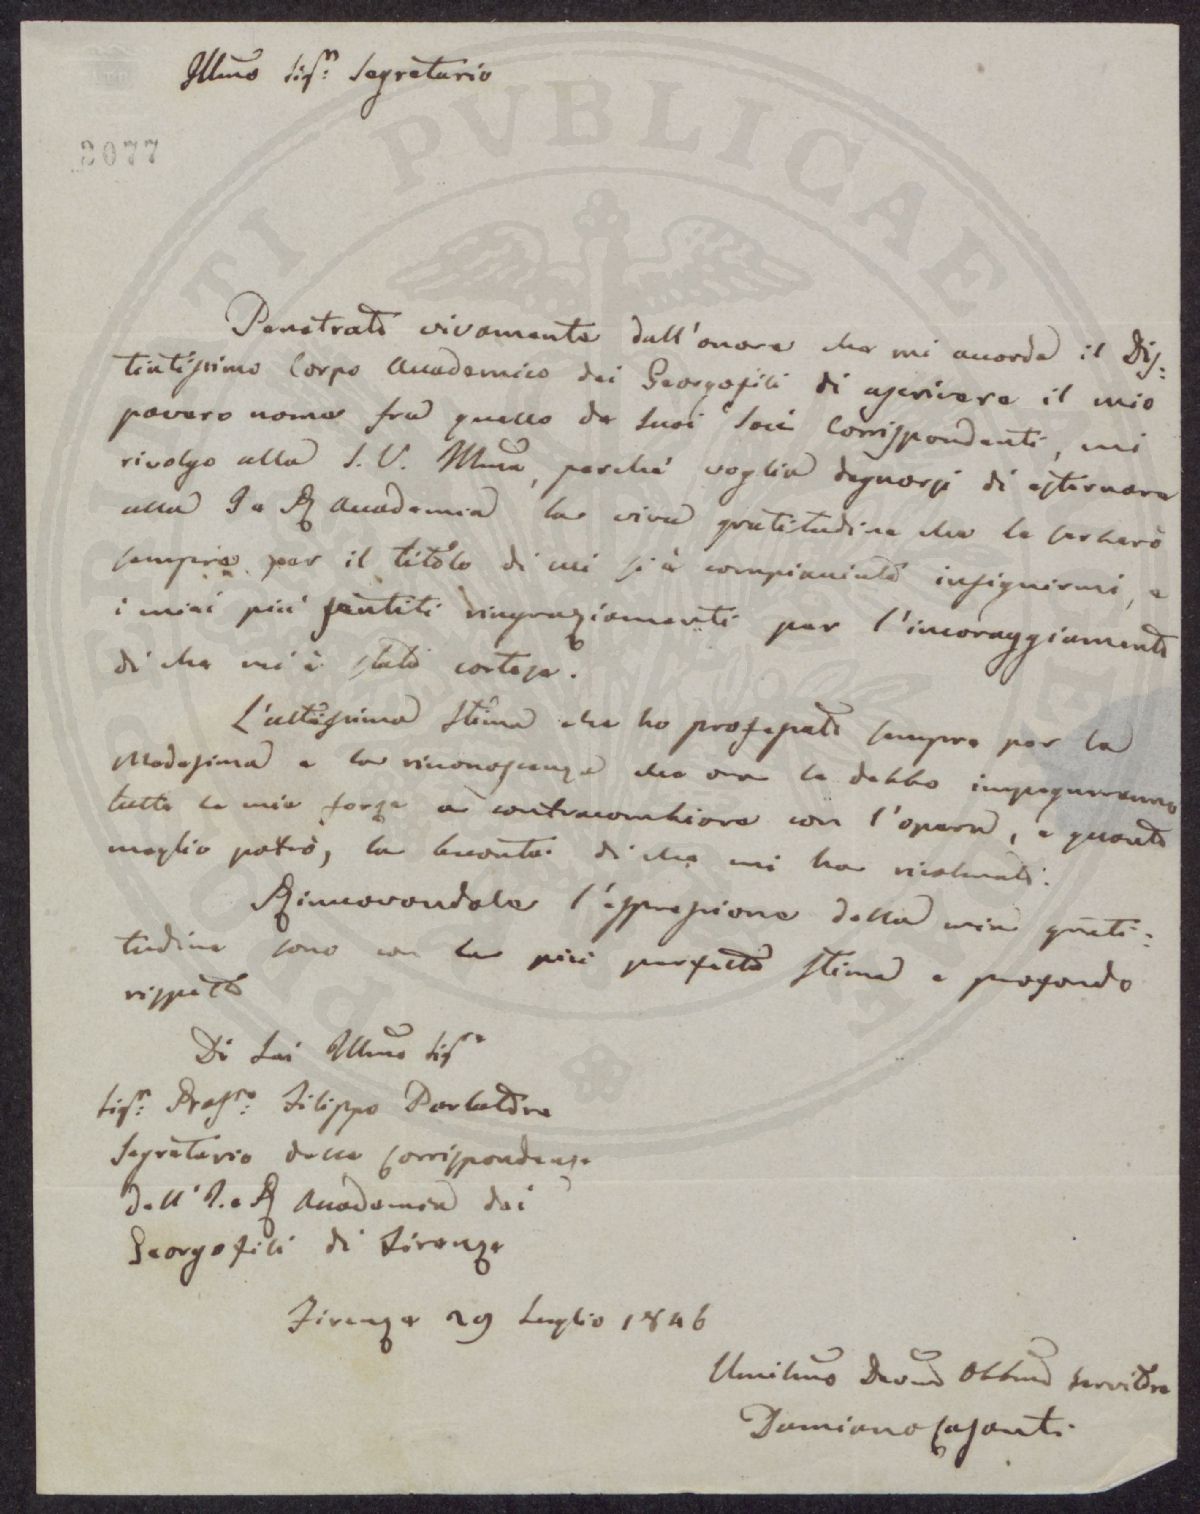 Illmo Sigr: Segretario
2077
Penetrato vivamente dall'onore che mi accorda il Dis:
tintissimo Corpo Accademico dei Georgofili di ascrivere il mio
povero nome fra quello de suoi Socii Corrispondenti, mi
rivolgo alla S. V. Illma, perché voglia degnarsi di esternare
alla I e R Accademia la viva gratitudine che le serberò
sempre per il titolo di cui si è compiaciuta insignirmi, e
i miei più sentiti ringraziamenti per l'incoraggiamento
di che mi è stata cortese.
L'altissima stima che ho professato sempre per la
Medesima e la riconoscenza che ora le debbo impegneranno
tutte le mie forze a contracambiare con l'opera, e quanto
meglio potrò, la bontà di che mi ha ricolmato.
Rinnovandole l'espressione della mia grati:
tudine sono con la più perfetta stima e profondo
rispetto
Di Lei Illmo Sigr
Sigr: Profre: Filippo Parlatore
Segretario delle Corrispondenze
dell'I. e R Accademia dei
Georgofili di Firenze
Firenze 29 Luglio 1846
Umilmo Devmo Obbmo Servitore
Damiano Casanti
PUBLICAE